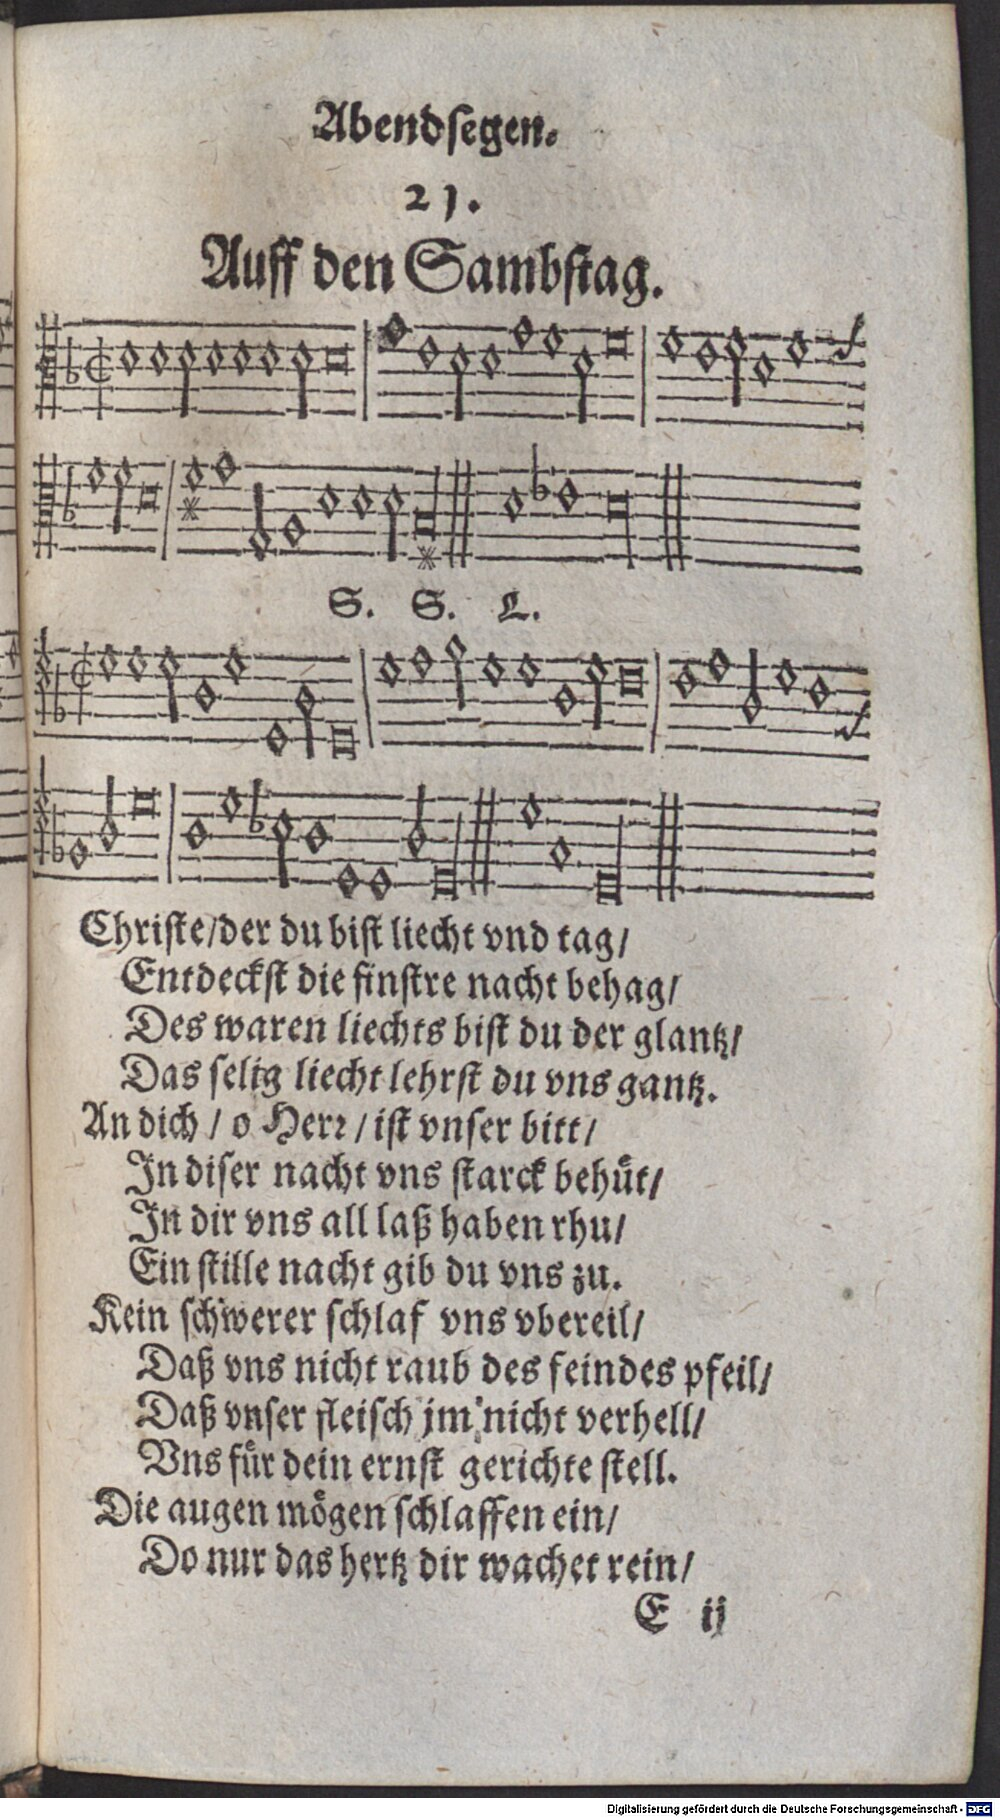 Abendsegen.
21.
Auff den Sambstag.
S. S. L.
Christe/der du bist liecht vnd tag/
Entdeckst die finstre nacht behag/
Des waren liechts bist du der glantz/
Das selig liecht lehrst du vns gantz.
An dich / o Herr / ist vnser bitt/
In diser nacht vns starck behuͤt/
In dir vns all laß haben rhu/
Ein stille nacht gib du vns zu.
Kein schwerer schlaf vns vbereil/
Daß vns nicht raub des feindes pfeil/
Daß vnser fleisch jm nicht verhell/
Vns fuͤr dein ernst gerichte stell.
Die augen moͤgen schlaffen ein/
Do nur das hertz dir wachet rein/
E ij
Digitalisierung gefördert durch die Deutsche Forschungsgemeinschaft - DFG